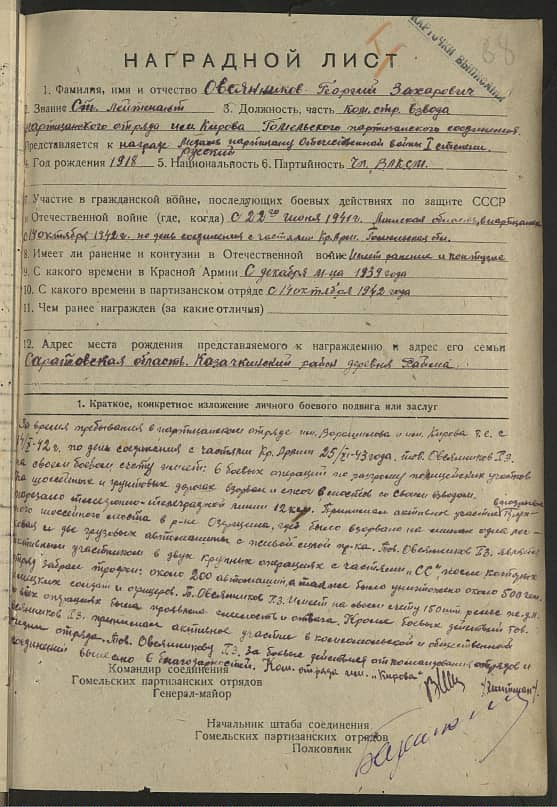 КАРТОЧКИ ВЫПИСАНА
68
НАГРАДНОЙ ЛИСТ
1. Фамилия, имя и отчество Овсянников Георгий Захарович
2. Звание Ст. Лейтенант 3. Должность, часть Ком. стр. взвода
партизанского отряда им Кирова Гомельского партизанского соединения.
Представляется к награде Медаль партизану Отечественной войны I степени.
4. Год рождения 1918 5. Национальность Русский 6. Партийность Чл. ВЛКСМ.
7. Участие в гражданской войне, последующих боевых действиях по защите СССР
и Отечественной войне (где, когда) с 22го июня 1941г. Минская область, в партизанах
с 14 октября 1942г. по день соединения с частями Кр. Арм. Гомельская обл.
8. Имеет ли ранение и контузии в Отечественной войне Имеет ранение и контузию
9. С какого времени в Красной Армии С декабря м-ца 1939 года
10. С какого времени в партизанском отряде с 14 октября 1942 года
11. Чем ранее награжден (за какие отличия)
12. Адрес места рождения представляемого к награждению и адрес его семьи
Саратовская область. Казачкинский район деревня
1. Краткое, конкретное изложение личного боевого подвига или заслуг
За время пребывания в партизанском отряде им. Ворошилова и им. Кирова т.е. с
14/X-42г. по день соединения с частями Кр. Армии 25/XI-43 года, тов. Овсянников Г.З.
на своем боевом счету имеет: 6 боевых операций по разгрому полицейских участков
На шоссейных и грунтовых дорогах взорвал и сжег 8 мостов со своим взводом.
порезано телефонно-телеграфной линии 12 км. Принимал активное участие
шоссейного моста в р-не где было взорвано на минах одна
и две грузовых автомашины с живой силой пр-ка. Тов. Овсянников Г.З. является
активным участником в двух крупных операциях с частями "СС", после которых
отряд забрал трофеи: около 200 автомашин, а также было уничтожено около 500 чел.
немецких солдат и офицеров. Т. Овсянников Г.З. Имеет на своем счету 150 шт рельс
В этих операциях была проявлена смелость и отвага. Кроме боевых действий тов.
Овсянников Г.З. принимает активное участие в комсомольской и общественной
жизни отряда. Тов. Овсянникову Г.З. за боевые действия от командования отрядов и
соединений вынесено 6 благодарностей. Ком. отряда им. "Кирова"
Командир соединения
Гомельских партизанских отрядов
Генерал-майор
Начальник штаба соединения
Гомельских партизанских отрядов
Полковник